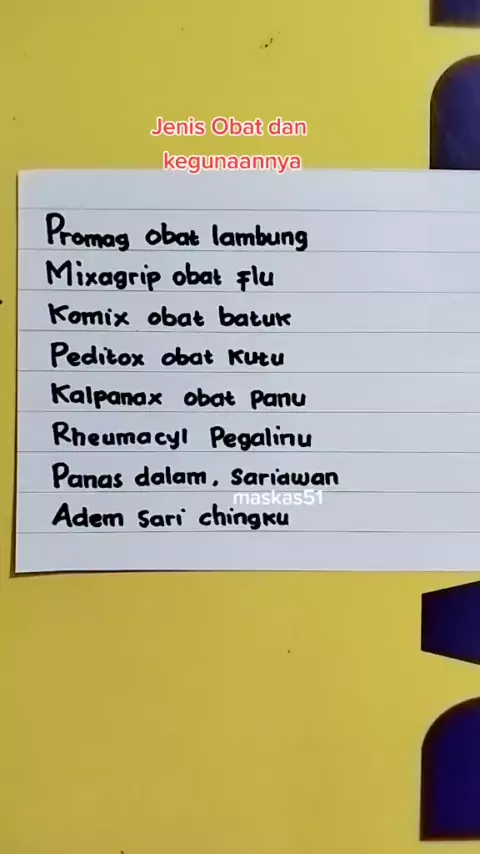 Jenis Obat dan
kegunaannya
Promag obat lambung
Mixagrip obat flu
Komix obat batuk
Peditox obat kutu
Kalpanax obat panu
Rheumacyl Pegalinu
Panas dalam, sariawan
maskas51
Adem sari chingku